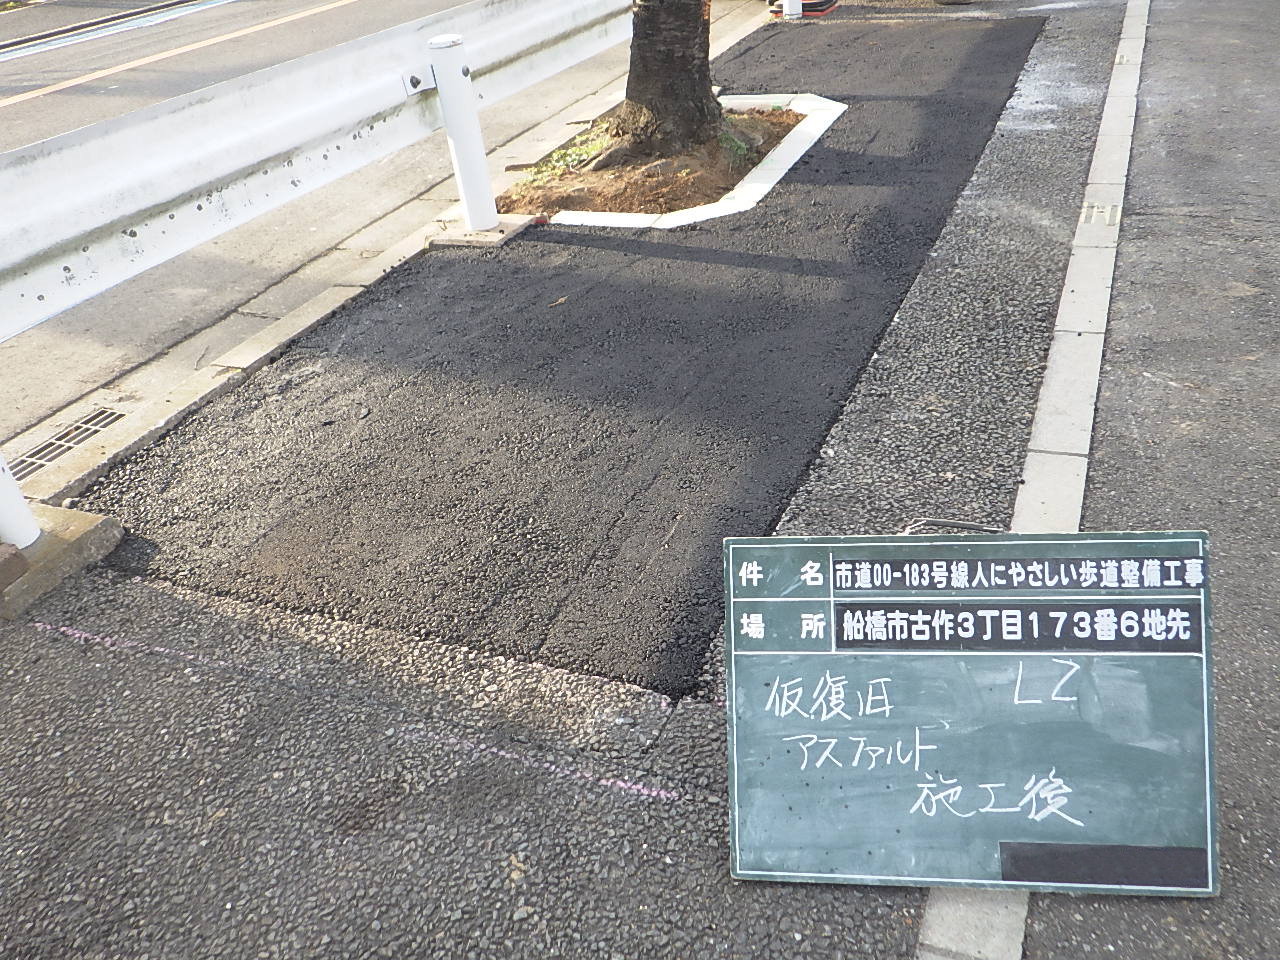 件名 市道00-183号線人にやさしい歩道整備工事
場所 船橋市古作3丁目173番6地先
仮復旧 L2
アスファルト
施工後